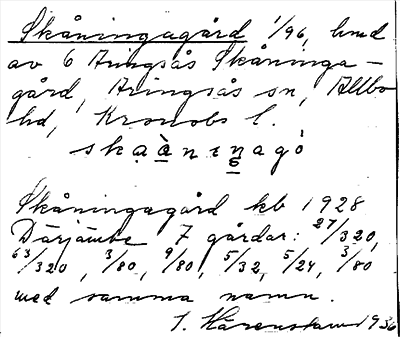 Skåningagård 1/96, hmd
av 6 Aringsås Skåninga-
gård, Aringsås sn, Allbo
hd, Kronobs l.
skąànıŋagò
Skåningagård kb 1928
Därjämte 7 gårdar: 27/320,
63/320, 3/80, 9/80, 5/32, 5/24, 3/80
med samma namn.
I. Hårenstam 1936